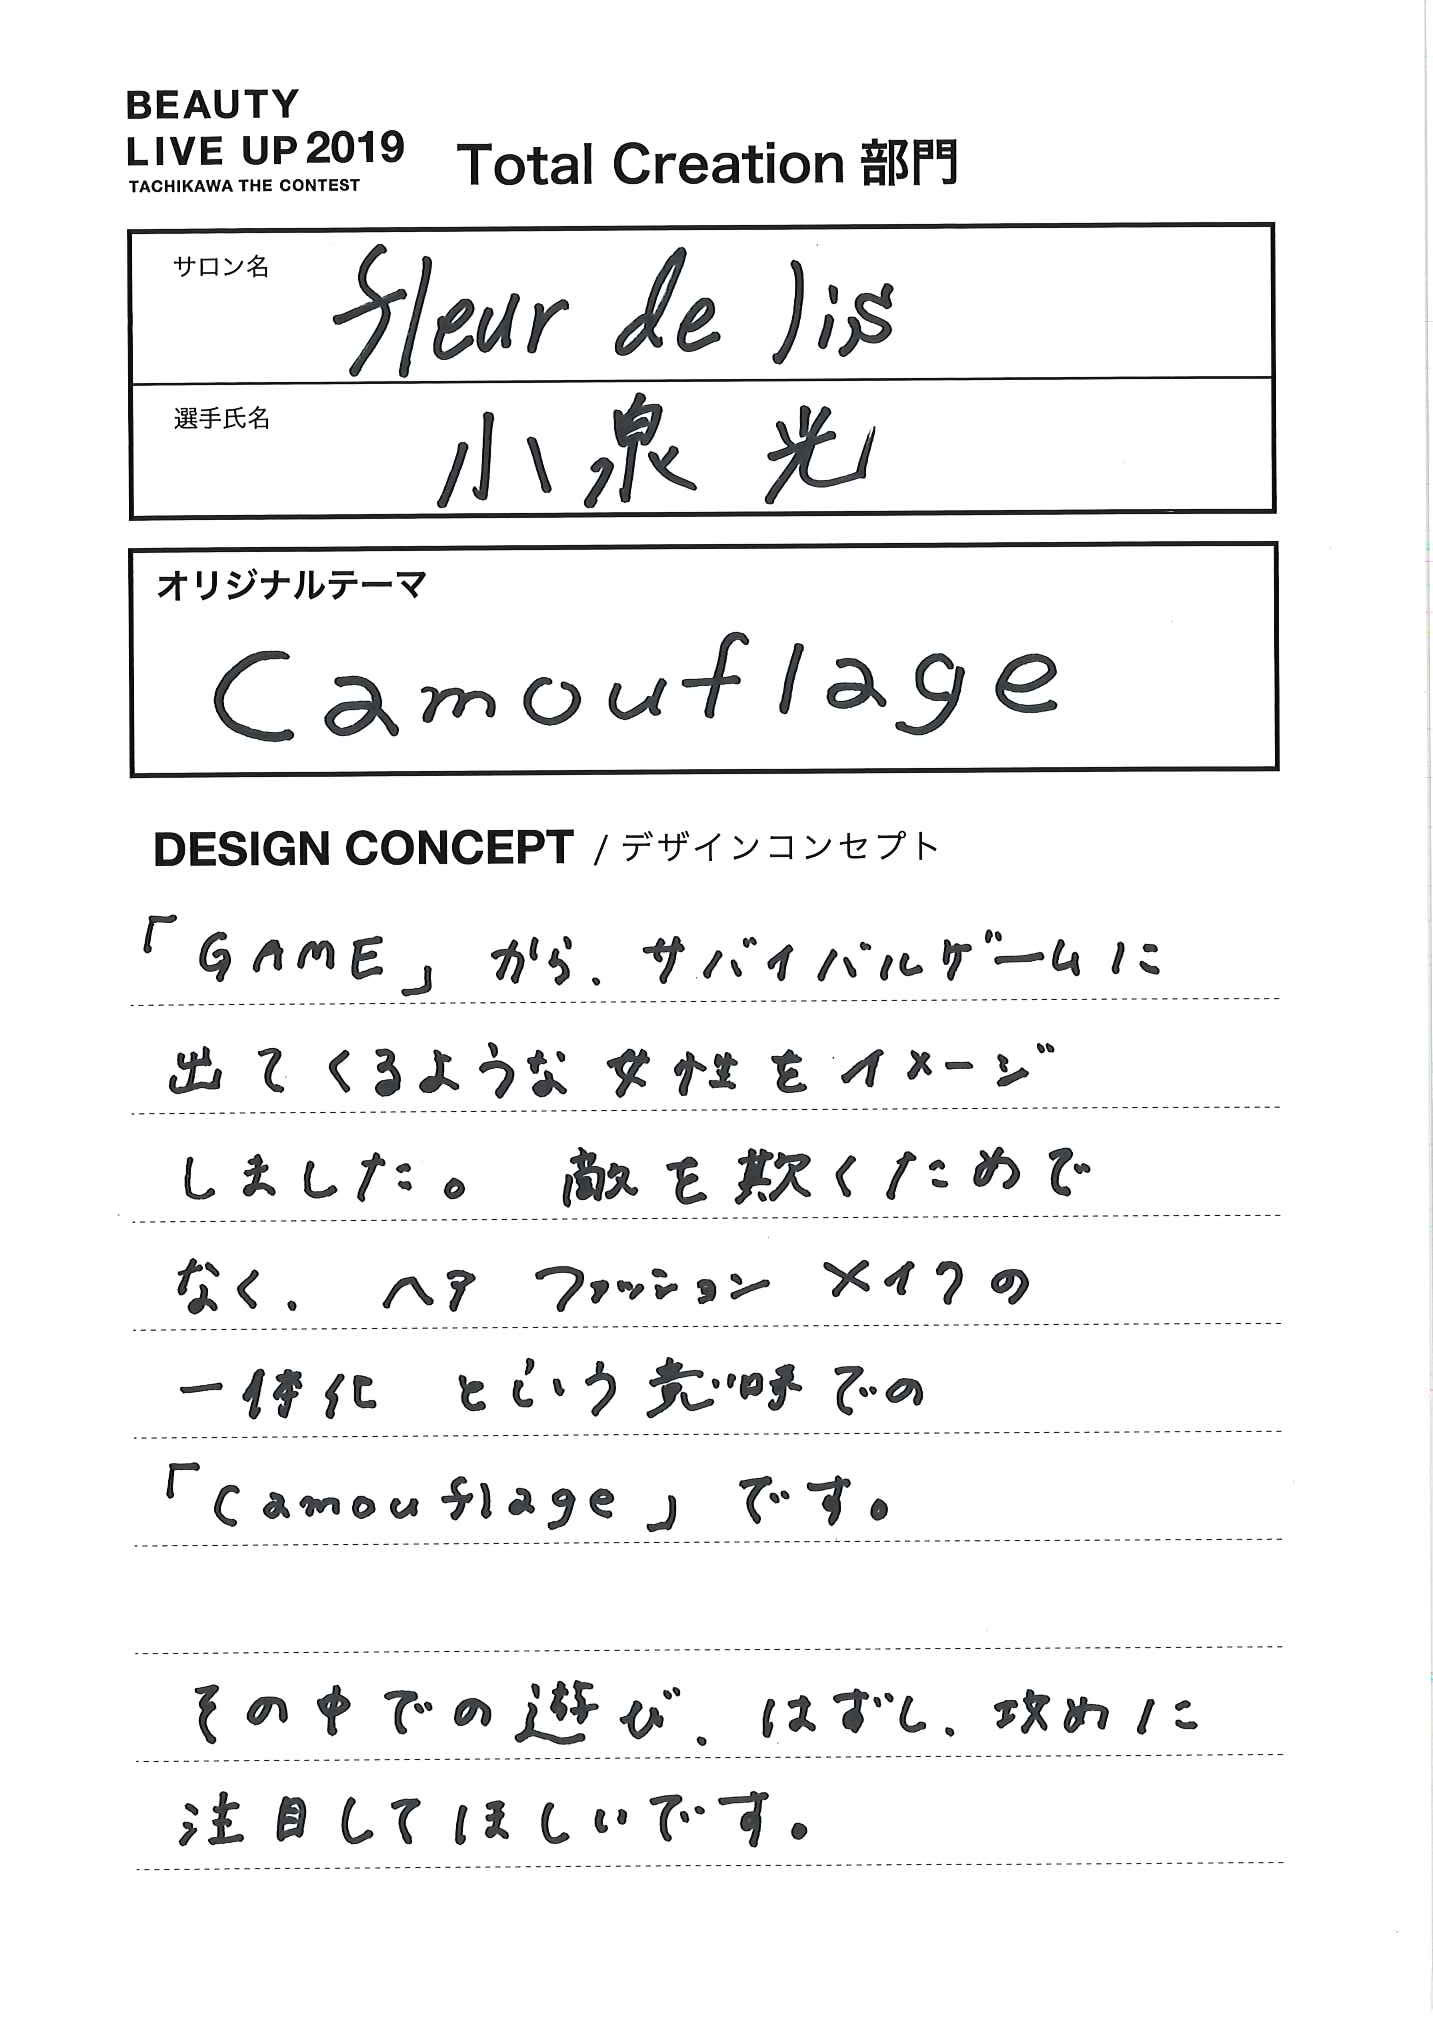 BEAUTY
LIVE UP 2019
TACHIKAWA THE CONTEST
Total Creation 部門
サロン名
fleur de lis
選手氏名
小泉 光
オリジナルテーマ
Camouflage
DESIGN CONCEPT / デザインコンセプト
「GAME」から、サバイバルゲームに
出てくるような女性をイメージ
しました。 敵を欺くためで
なく、 ヘア ファッション メイクの
一体化 という意味での
「Camouflage」です。
その中での遊び、はずし、攻めに
注目してほしいです。